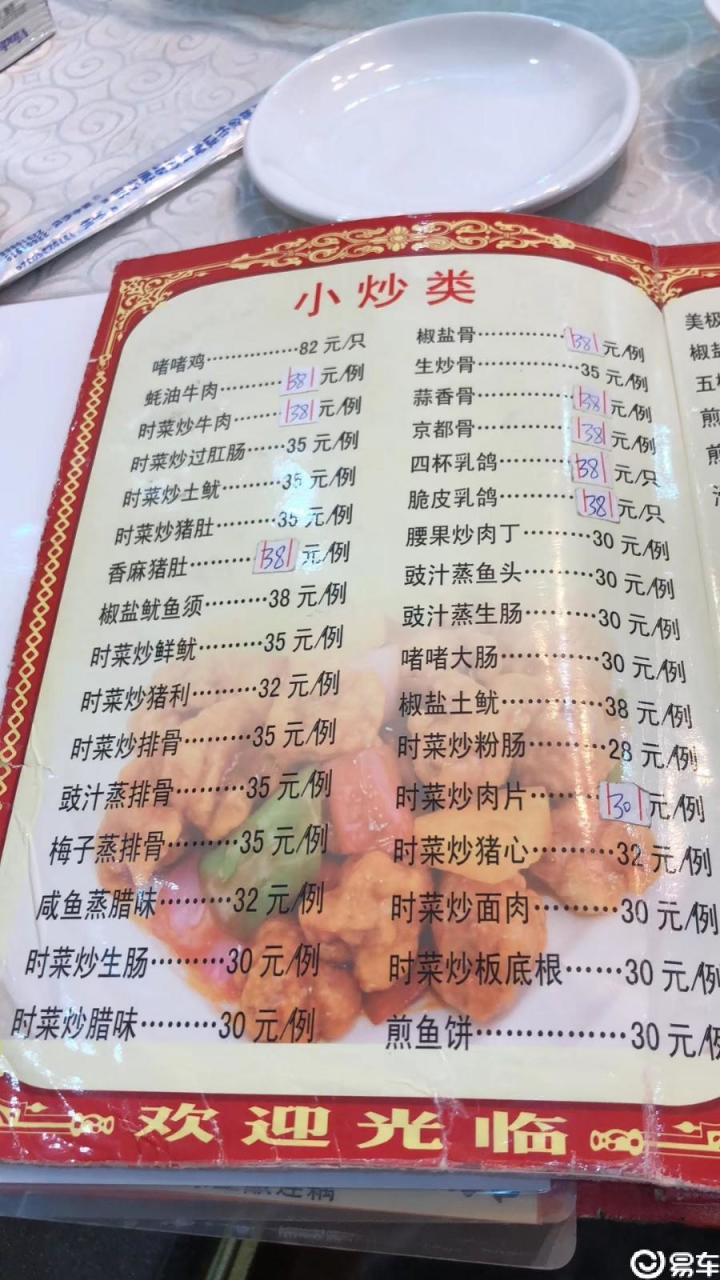 小炒类
啫啫鸡……………82元/只
蚝油牛肉…………38元/例
时菜炒牛肉………38元/例
时菜炒过肛肠……35元/例
时菜炒土鱿………35元/例
时菜炒猪肚………35元/例
香麻猪肚…………38元/例
椒盐鱿鱼须………38元/例
时菜炒鲜鱿………35元/例
时菜炒猪利………32元/例
时菜炒排骨………35元/例
豉汁蒸排骨………35元/例
梅子蒸排骨………35元/例
咸鱼蒸腊味………32元/例
时菜炒生肠………30元/例
时菜炒腊味………30元/例
椒盐骨……………38元/例
生炒骨……………35元/例
蒜香骨……………38元/例
京都骨……………38元/例
四杯乳鸽…………38元/只
脆皮乳鸽…………38元/只
腰果炒肉丁………30元/例
豉汁蒸鱼头………30元/例
豉汁蒸生肠………30元/例
啫啫大肠…………30元/例
椒盐土鱿…………38元/例
时菜炒粉肠………28元/例
时菜炒肉片………30元/例
时菜炒猪心………32元/例
时菜炒面肉………30元/例
时菜炒板底根……30元/例
煎鱼饼……………30元/例
美极
椒盐
五
煎
煎
欢迎光临
易车